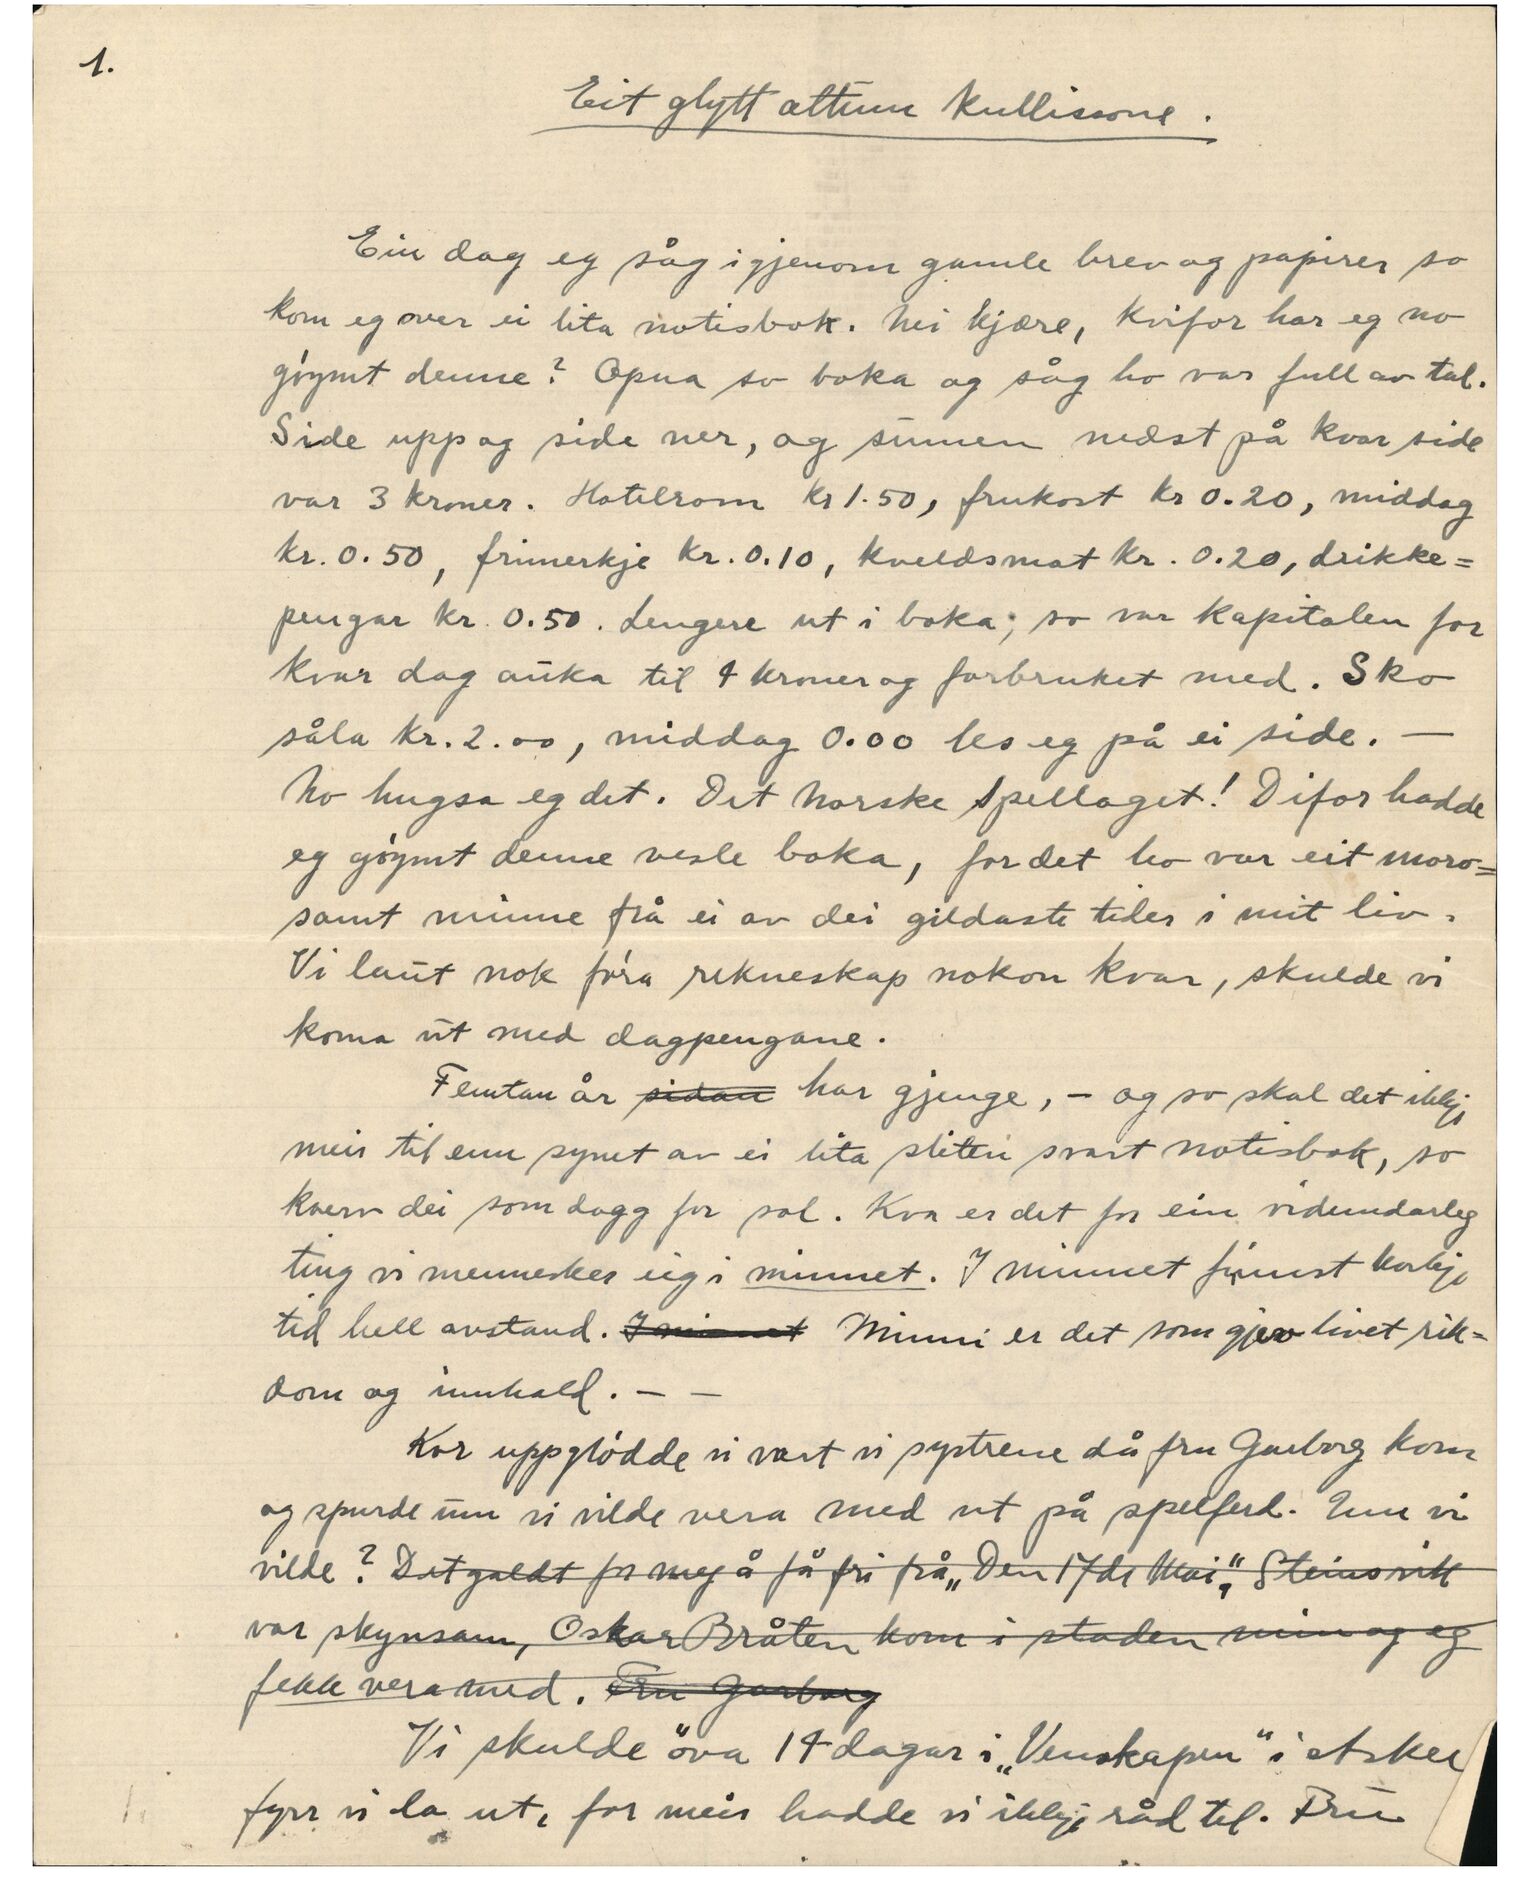 1.
Eit glytt attum kullissone.
Ein dag eg såg igjenom gamle brev og papirer so
kom eg over ei lita notisbok. Nei kjære, kvifor har eg no
gøymt denne? Opna so boka og såg ho var full av tal.
Side upp og side ner, og summen nedst på kvar side
var 3 kroner. Hotelrom kr 1.50, frukost kr 0.20, middag
kr. 0.50, frimerkje kr. 0.10, kveldsmat kr. 0.20, drikke=
pengar kr. 0.50. Lengere ut i boka; so var kapitalen for
kvar dag auka til 4 kroner og forbruket med. Sko
såla kr. 2.00, middag 0.00 les eg på ei side. —
No hugsa eg det. Det Norske Spellaget! Difor hadde
eg gøymt denne vesle boka, for det ho var eit moro=
samt minne frå ei av dei gildaste tider i mit liv.
Vi laut nok føra rekneskap nokon kvar, skulde vi
koma ut med dagpengane.
Femtan år sidan har gjenge, – og so skal det ikkje
meir til enn synet av ei lita sliten svart notisbok, so
kverv dei som dogg for sol. Kva er det for ein vidundarleg
ting vi mennesker eig i minnet. I minnet finnst korkje
tid hell avstand. I minnet Minni er det som gjev livet rik=
dom og innhald. – –
Kor uppglødde vi vart vi systrene då fru Garborg kom
og spurde um vi vilde vera med ut på spelferd. Um vi
vilde? Det galdt for meg å få fri frå „Den 17de Mai“. Steinsvik
var skynsam, Oskar Bråten kom i staden min og eg
fekk vera med. Fru Garborg
Vi skulde öva 14 dagar i „Venskapen“ i Asker
fyrr vi la ut, for meir hadde vi ikkje råd til. Fru